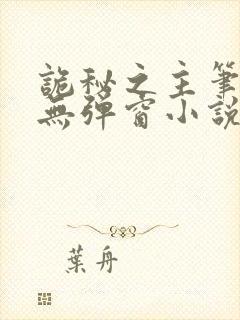 詭秘之主筆
無彈窗小說
葉舟